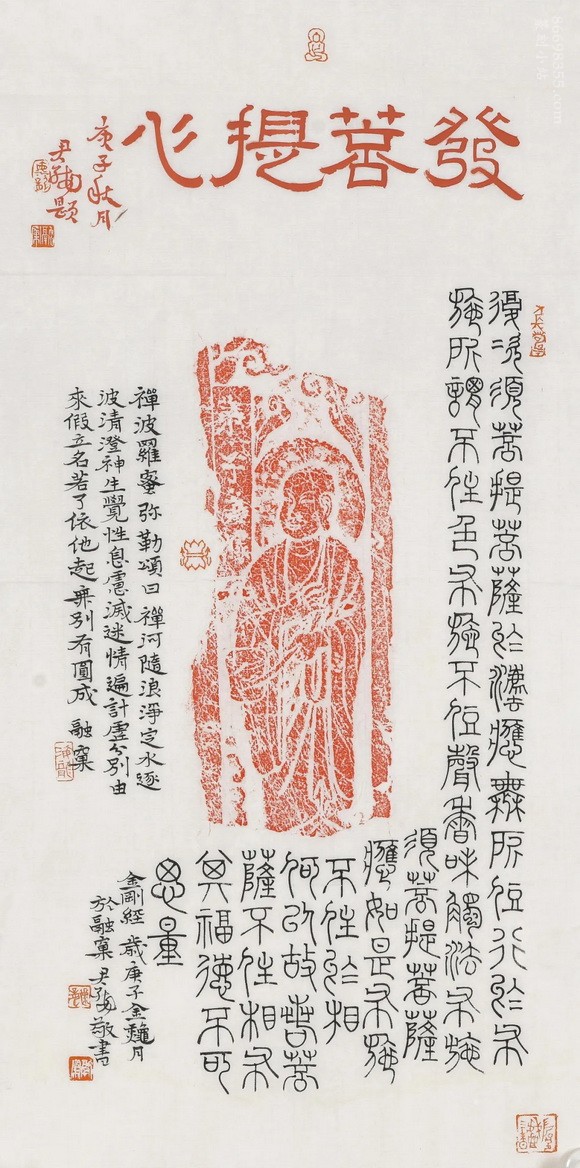 發菩提心
庚子秋月
題
復次須菩提菩薩於灋應無所住行於布
施所謂不住色布施不住聲香味觸法布施
須菩提菩薩
應如是布施
不住於相
何以故若菩
薩不住相布
其福德不可
思量
金剛經 歲庚子金龝月
於融窠尹敬書
禪波羅蜜弥勒頌曰 禪河隨浪淨定水逐
波清澄神生覺性息慮滅迷情遍計虛分別由
來假立名若了依他起無別有圓成 融窠